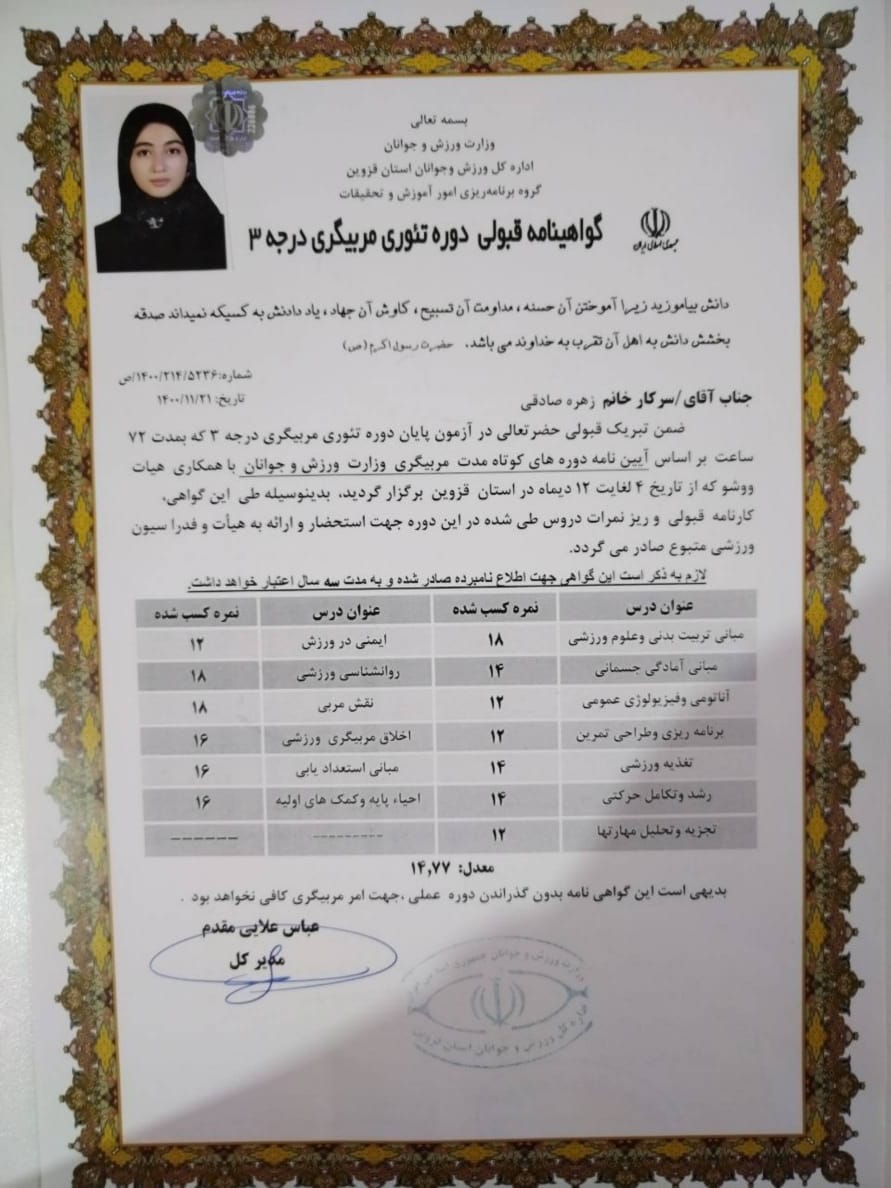 بسمه تعالی
وزارت ورزش و جوانان
اداره کل ورزش وجوانان استان قزوین
گروه برنامه‌ریزی امور آموزش و تحقیقات
جمهوری اسلامی ایران
گواهینامه قبولی دوره تئوری مربیگری درجه ۳
دانش بیاموزید زیرا آموختن آن حسنه ، مداومت آن تسبیح ، کاوش آن جهاد ، یاد دادنش به کسیکه نمیداند صدقه
بخشش دانش به اهل آن تقرب به خداوند می باشد. حضرت رسول اکرم (ص)
شماره: ۱۴۰۰/۲۱۴/۵۲۳۶/ص
تاریخ: ۱۴۰۰/۱۱/۲۱
جناب آقای /سرکار خانم زهره صادقی
ضمن تبریک قبولی حضرتعالی در آزمون پایان دوره تئوری مربیگری درجه ۳ که بمدت ۷۲
ساعت بر اساس آیین نامه دوره های کوتاه مدت مربیگری وزارت ورزش و جوانان با همکاری هیات
ووشو که از تاریخ ۴ لغایت ۱۲ دیماه در استان قزوین برگزار گردید، بدینوسیله طی این گواهی،
کارنامه قبولی و ریز نمرات دروس طی شده در این دوره جهت استحضار و ارائه به هیأت و فدرا سیون
ورزشی متبوع صادر می گردد.
لازم به ذکر است این گواهی جهت اطلاع نامبرده صادر شده و به مدت سه سال اعتبار خواهد داشت.
عنوان درس نمره کسب شده عنوان درس نمره کسب شده
مبانی تربیت بدنی وعلوم ورزشی ۱۸ ایمنی در ورزش ۱۲
مبانی آمادگی جسمانی ۱۴ روانشناسی ورزشی ۱۸
آناتومی وفیزیولوژی عمومی ۱۲ نقش مربی ۱۸
برنامه ریزی وطراحی تمرین ۱۲ اخلاق مربیگری ورزشی ۱۶
تغذیه ورزشی ۱۴ مبانی استعداد یابی ۱۶
رشد وتکامل حرکتی ۱۴ احیاء پایه وکمک های اولیه ۱۶
تجزیه وتحلیل مهارتها ۱۲ --------- ------
معدل: ۱۴,۷۷
بدیهی است این گواهی نامه بدون گذراندن دوره عملی ،جهت امر مربیگری کافی نخواهد بود .
عباس علایی مقدم
مدیر کل
وزارت ورزش و جوانان جمهوری
اداره کل ورزش و جوانان استان قزوین